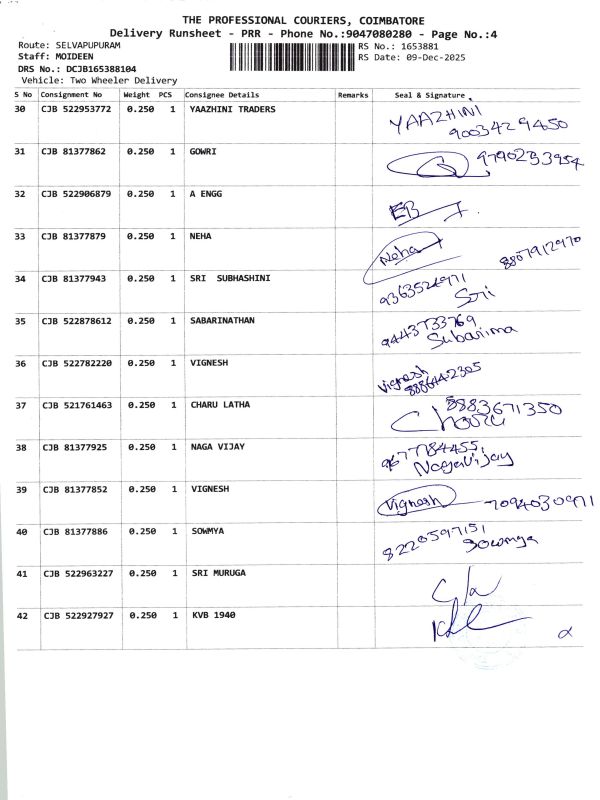 THE PROFESSIONAL COURIERS, COIMBATORE
Delivery Runsheet - PRR - Phone No.:9047080280 - Page No.:4
Route: SELVAPUPURAM
RS No.: 1653881
Staff: MOIDEEN
RS Date: 09-Dec-2025
DRS No.: DCJB165388104
Vehicle: Two Wheeler Delivery
S No Consignment No Weight PCS Consignee Details Remarks Seal & Signature
30 CJB 522953772 0.250 1 YAAZHINI TRADERS YAAZHINI
9003429450
31 CJB 81377862 0.250 1 GOWRI 9790233954
32 CJB 522906879 0.250 1 A ENGG
33 CJB 81377879 0.250 1 NEHA Neha 8807912970
34 CJB 81377943 0.250 1 SRI SUBHASHINI 9363524971
Sri
35 CJB 522878612 0.250 1 SABARINATHAN 9443733769
Subarima
36 CJB 522782220 0.250 1 VIGNESH Vignesh
8886442305
37 CJB 521761463 0.250 1 CHARU LATHA 8883671350
38 CJB 81377925 0.250 1 NAGA VIJAY 9677784455,
NagaVijay
39 CJB 81377852 0.250 1 VIGNESH Vignesh 7094030971
40 CJB 81377886 0.250 1 SOWMYA 8220597151
Sowmya
41 CJB 522963227 0.250 1 SRI MURUGA
42 CJB 522927927 0.250 1 KVB 1940